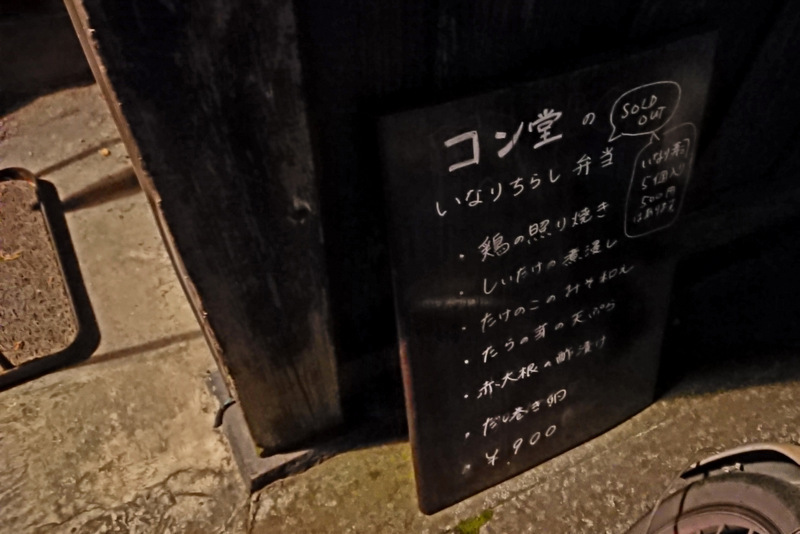 コン堂の
SOLD
OUT
いなりちらし弁当
いなり寿司
5個入
500円
はあります
・鶏の照り焼き
・しいたけの煮浸し
・たけのこのみそ和え
・たらの芽の天ぷら
・赤大根の酢漬け
・だし巻き卵
・¥.900